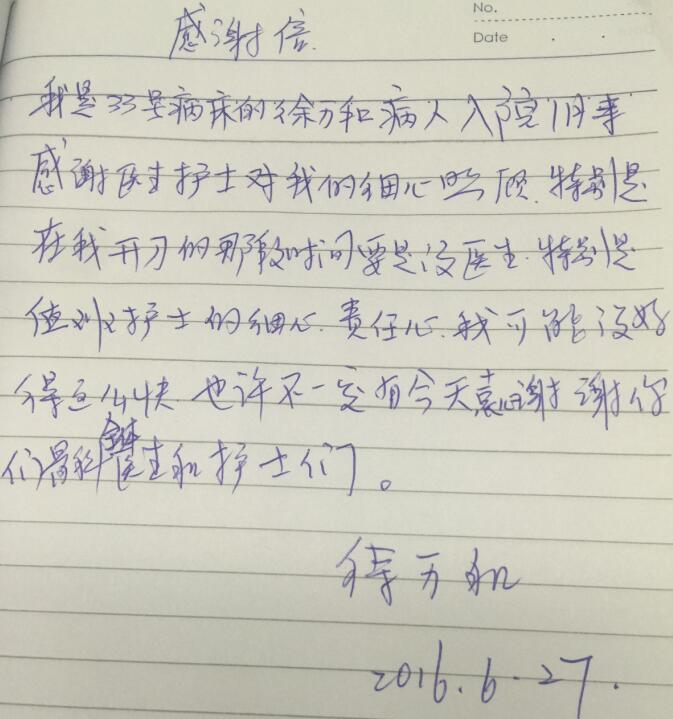 No.
Date
感谢信.
我是33号病床的徐万和病人入院1月来
感谢医生护士对我的细心照顾.特别是
在我开刀的那段时间要是没医生.特别是
值班护士的细心.责任心.我可能没好
得这么快 也许不一定有今天衷心谢谢你
们骨科全体医生和护士们。
徐万和
2016.6.27.